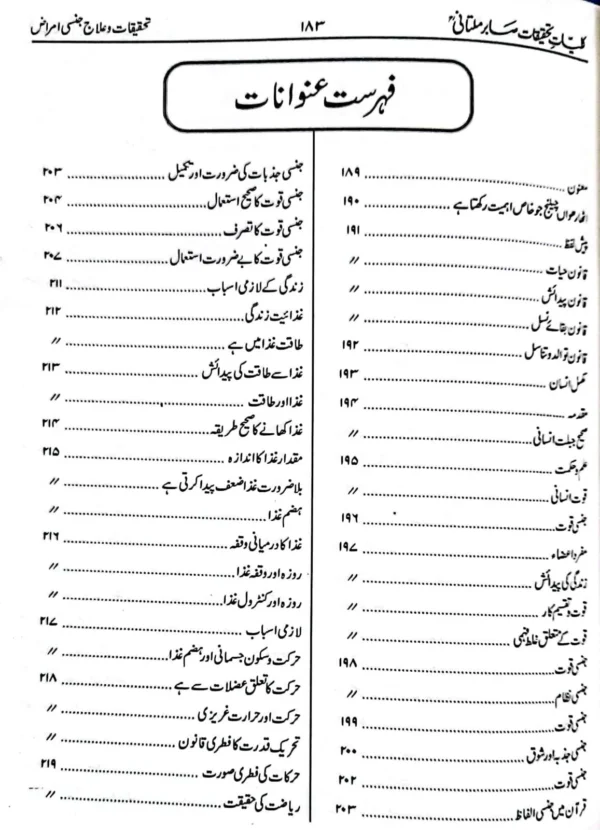 کلیات تحقیقات صابر ملتانیؒ ۱۸۳ تحقیقات و علاج جنسی امراض
فہرست عنوانات
معنون ۱۸۹
اٹھارھواں چیلنج جو خاص اہمیت رکھتا ہے ۱۹۰
پیش لفظ ۱۹۱
قانون حیات 〃
قانون پیدائش 〃
قانون بقائے نسل 〃
قانون توالد و تناسل ۱۹۲
مکمل انسان ۱۹۳
مقدمہ ۱۹۴
صحیح جبلت انسانی 〃
علم و حکمت ۱۹۵
قوت انسانی 〃
جنسی قوت ۱۹۶
مفرد اعضاء ۱۹۷
زندگی کی پیدائش 〃
قوت و تقسیم کار 〃
قوت کے متعلق غلط فہمی 〃
جنسی قوت ۱۹۸
جنسی نظام 〃
جنسی قوت ۱۹۹
جنسی جذبہ اور شوق ۲۰۰
جنسی قوت ۲۰۲
قرآن میں جنسی الفاظ ۲۰۳
جنسی جذبات کی ضرورت اور تکمیل ۲۰۳
جنسی قوت کا صحیح استعمال ۲۰۴
جنسی قوت کا تصرف ۲۰۶
جنسی قوت کا بے ضرورت استعمال ۲۰۷
زندگی کے لازمی اسباب ۲۱۱
غذائیت زندگی ۲۱۲
طاقت غذا میں ہے 〃
غذا سے طاقت کی پیدائش ۲۱۳
غذا اور طاقت 〃
غذا کھانے کا صحیح طریقہ ۲۱۴
مقدار غذا کا اندازہ ۲۱۵
بلا ضرورت غذا ضعف پیدا کرتی ہے 〃
ہضم غذا 〃
غذا کا درمیانی وقفہ ۲۱۶
روزہ اور وقفہ غذا 〃
روزہ اور کنٹرول غذا 〃
لازمی اسباب ۲۱۷
حرکت و سکون جسمانی اور ہضم غذا 〃
حرکت کا تعلق عضلات سے ہے ۲۱۸
حرکت اور حرارت غریزی 〃
تحریک قدرت کا فطری قانون 〃
حرکات کی فطری صورت ۲۱۹
ریاضت کی حقیقت 〃